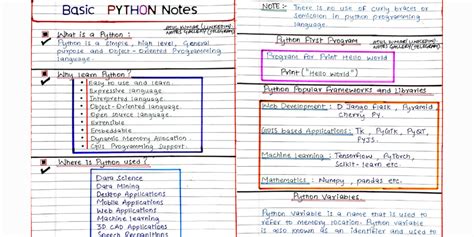 Basic PYTHON Notes
ATUL KUMAR (LINKEDIN)
NOTES GALLERY (TELEGRAM)
What is a Python :
Python is a simple, high level, General
purpose and Object-Oriented Programming
language.
Why learn Python?
Easy to use and learn
Expressive language
Interpreted language
Object-Oriented language
Open source language
Extensible
Embeddable
Dynamic Memory Allocation
GUIS Programming Support.
Where is Python used?
Data Science
Data Mining
Desktop Applications
Mobile Applications
Web Applications
Machine learning
3D CAD Applications
Speech Recognitions
NOTE :- There is no use of curly braces or
semicolon in python programming
language.
Python First Program
ATUL KUMAR (LINKEDIN)
NOTES GALLERY (TELEGRAM)
Program for Print Hello World
Print ("Hello World")
Python Popular Frameworks and Libraries
Web Development : Pyramid
Cherry Py.
GUIS based Applications: Tk, PyGTK, PyQT,
PyJS.
Machine Learning : Tensorflow, PyTorch,
Scikit-learn etc.
Mathematics : Numpy, pandas etc.
Python Variables.
Python Variable is a name that is used to
refer to memory location. Python variable is
also known as an identifier and used to